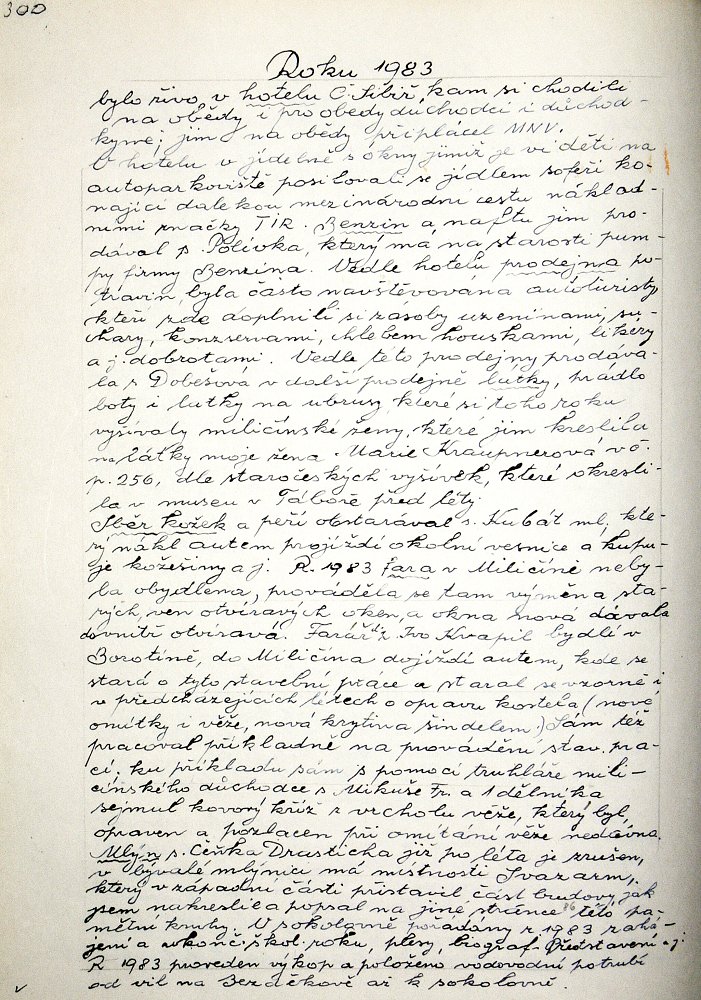 300
Roku 1983
bylo živo v hotelu Č. Sibiř, kam si chodili
na obědy i pro obědy důchodci i důchod-
kyně; jim na obědy připlácel MNV.
V hotelu v jídelně s okny jimiž je viděti na
autoparkoviště posilovali se jídlem šoféři ko-
nající dalekou mezinárodní cestu náklad-
ními značky TIR. Benzin a naftu jim pro-
dával p. Polívka, který má na starosti pum-
py firmy Benzina. Vedle hotelu prodejna po-
travin byla často navštěvována autoturisty,
kteří zde doplnili si zásoby uzeninami, su-
chary, konzervami, chlebem houskami, likéry
a j. dobrotami. Vedle této prodejny prodáva-
la s. Dobešová v další prodejně látky, prádlo
boty i látky na ubrusy, které si toho roku
vyšívaly miličínské ženy, které jim kreslila
na látky moje žena Marie Kraupnerová v č.
p. 256, dle staročeských výšivek, které okresli-
la v museu v Táboře před léty.
Sběr kožek a peří obstarával s. Kubát ml., kte-
rý nákl. autem projíždí okolní vesnice a kupu-
je kožešiny a j. R. 1983 fara v Miličíně neby-
la obydlena, prováděla se tam výměna sta-
rých, ven otvíravých oken, a okna nová dávala
dovnitř otvíravá. Farář Ivo Kvapil bydlí v
Borotíně, do Miličína dojíždí autem, kde se
stará o tyto stavební práce a staral se vzorně i
v předcházejících létech o opravu kostela (nové
omítky i věže, nová krytina šindelem.) Sám též
pracoval příkladně na provádění stav. pra-
cí, ku příkladu sám s pomocí truhláře mili-
čínského důchodce s. Mikuše Fr. a 1 dělníka
sejmul kovový kříž z vrcholu věže, který byl
opraven a pozlacen při omítání věže nedávno.
Mlýn s. Čeňka Drasticha již po léta je zrušen,
v bývalé mlýnici má místnosti Svazarm,
který v západní části přistavil část budovy, jak
jsem nakreslil a popsal na jiné stránce 86 této pa-
mětní knihy. V sokolovně pořádány r. 1983 zahá-
jení a zakonč. škol. roku, plesy, biograf. představení a j.
R. 1983 proveden výkop a položeno vodovodní potrubí
od vil na Bezděkově až k sokolovně.